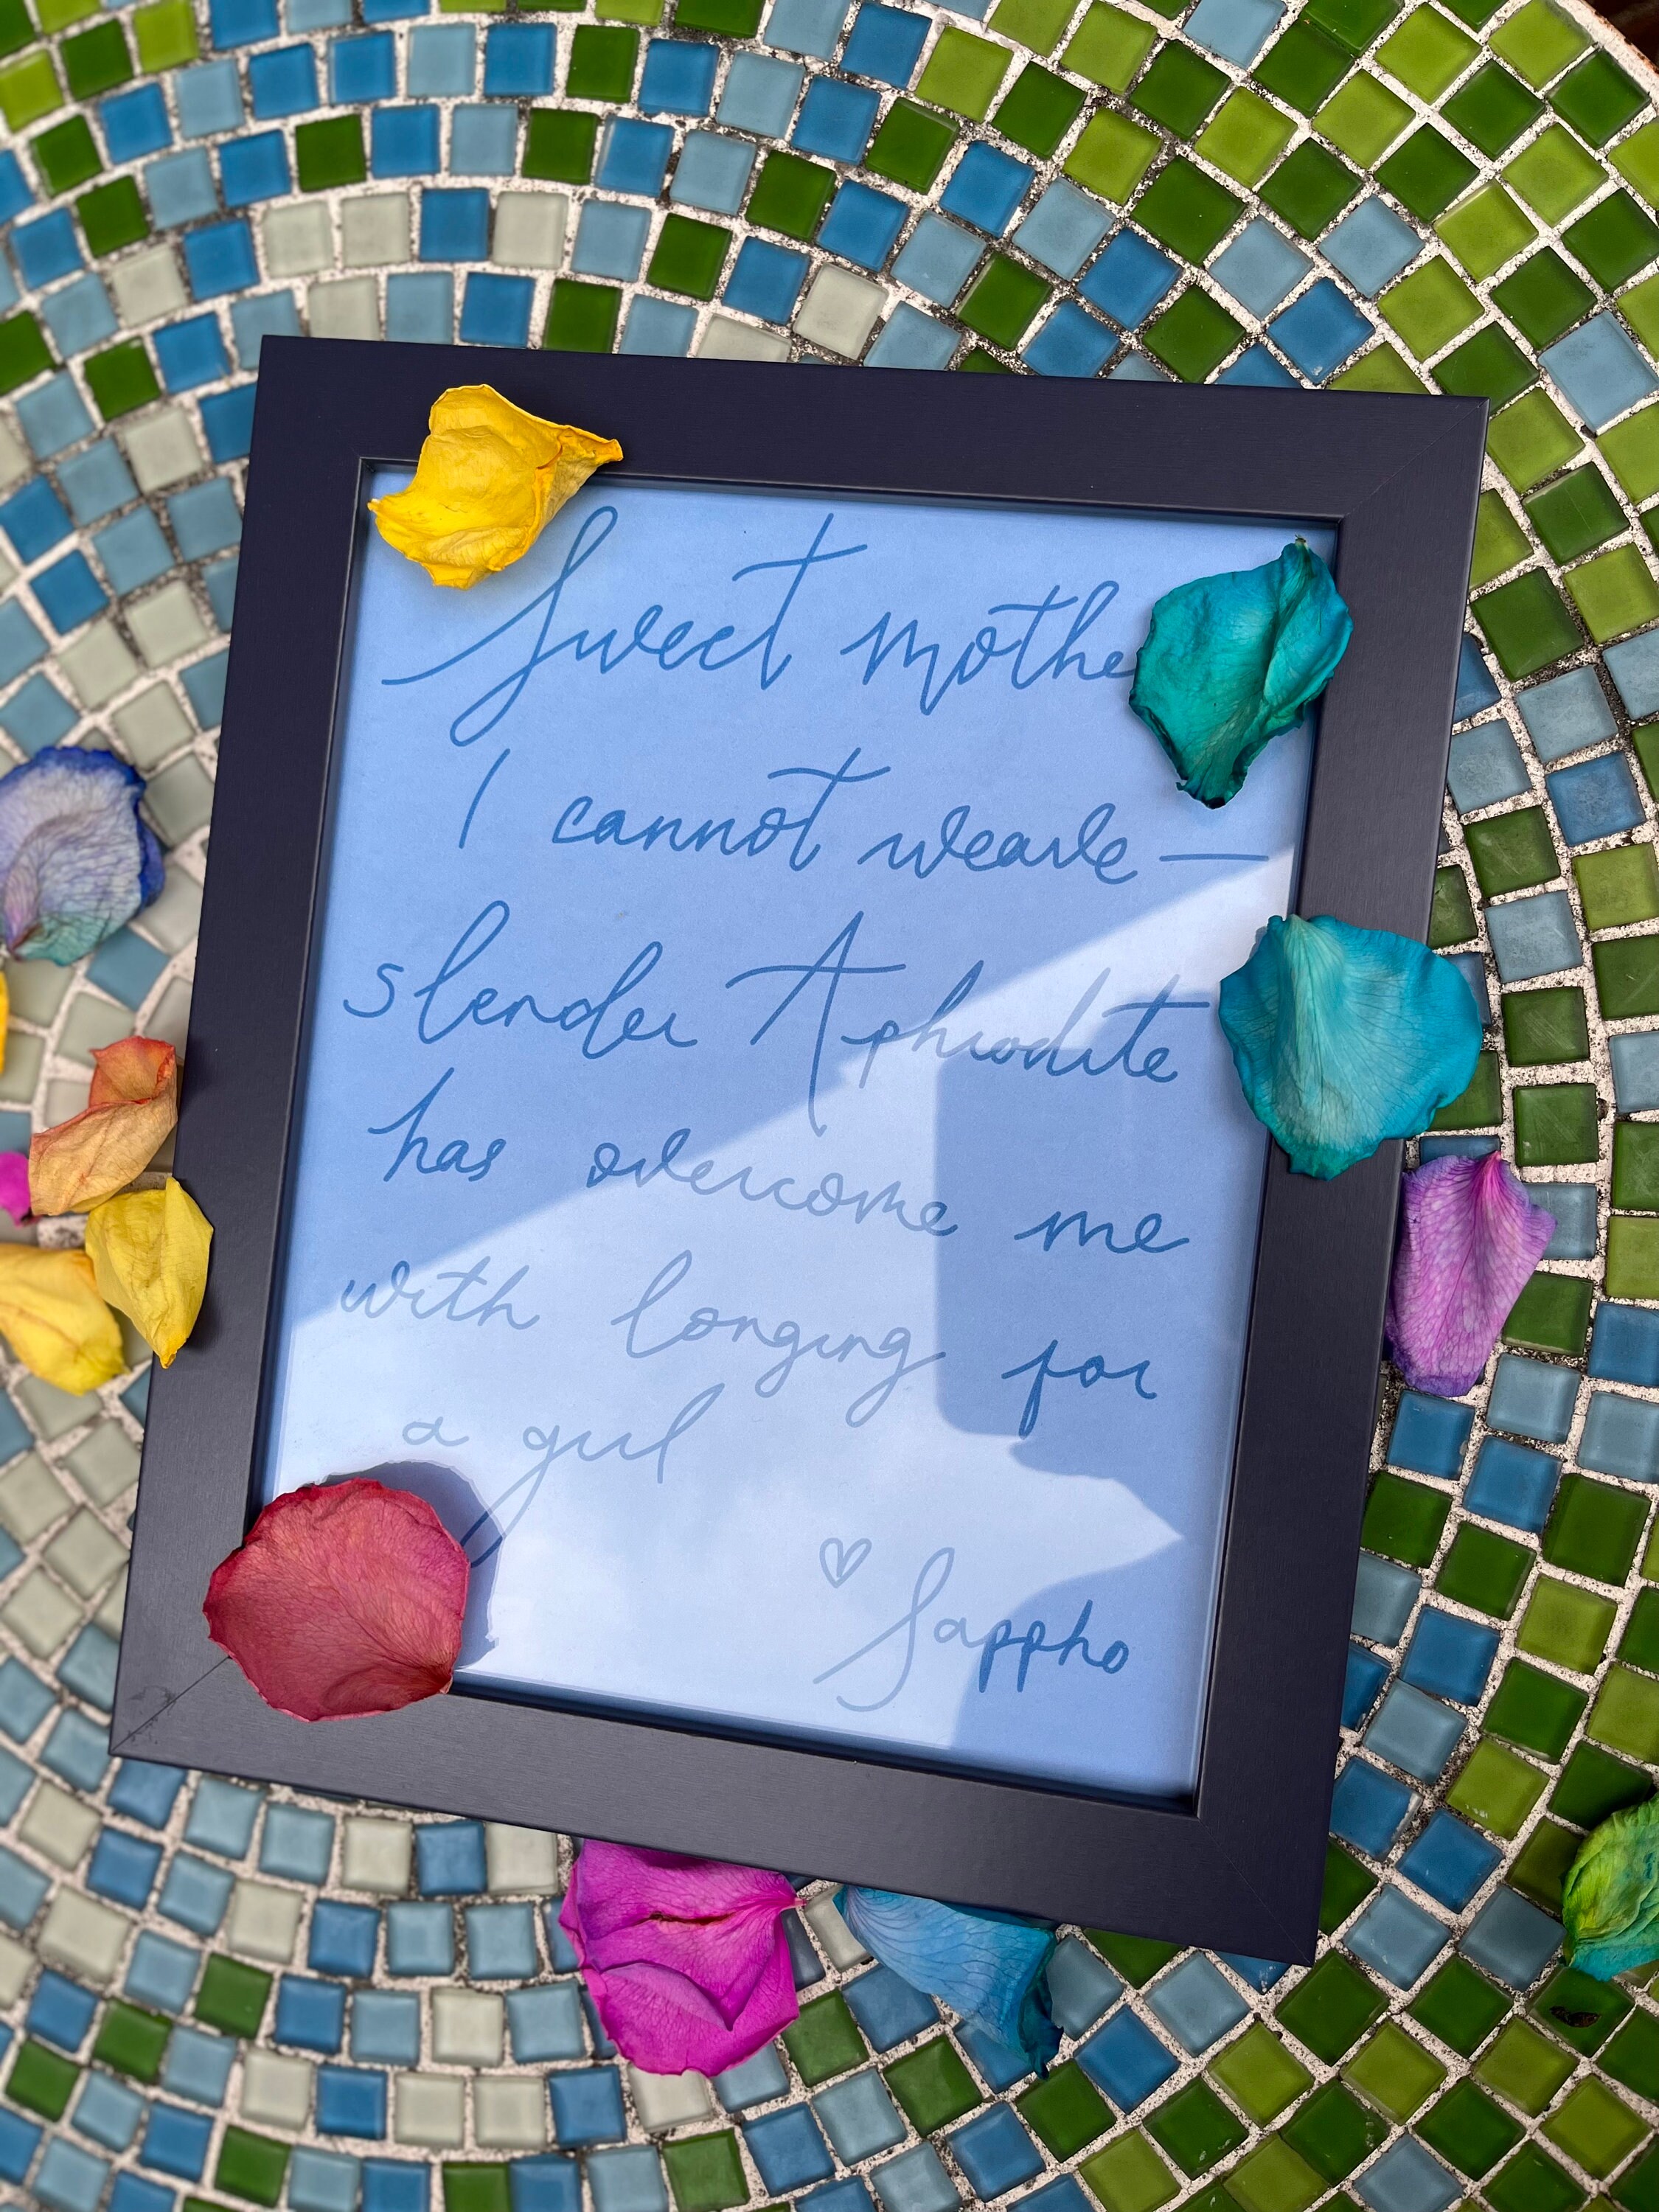 Sweet mothe
I cannot weave —
slender Aphrodite
has overcome me
with longing for
a girl
♡ Sappho